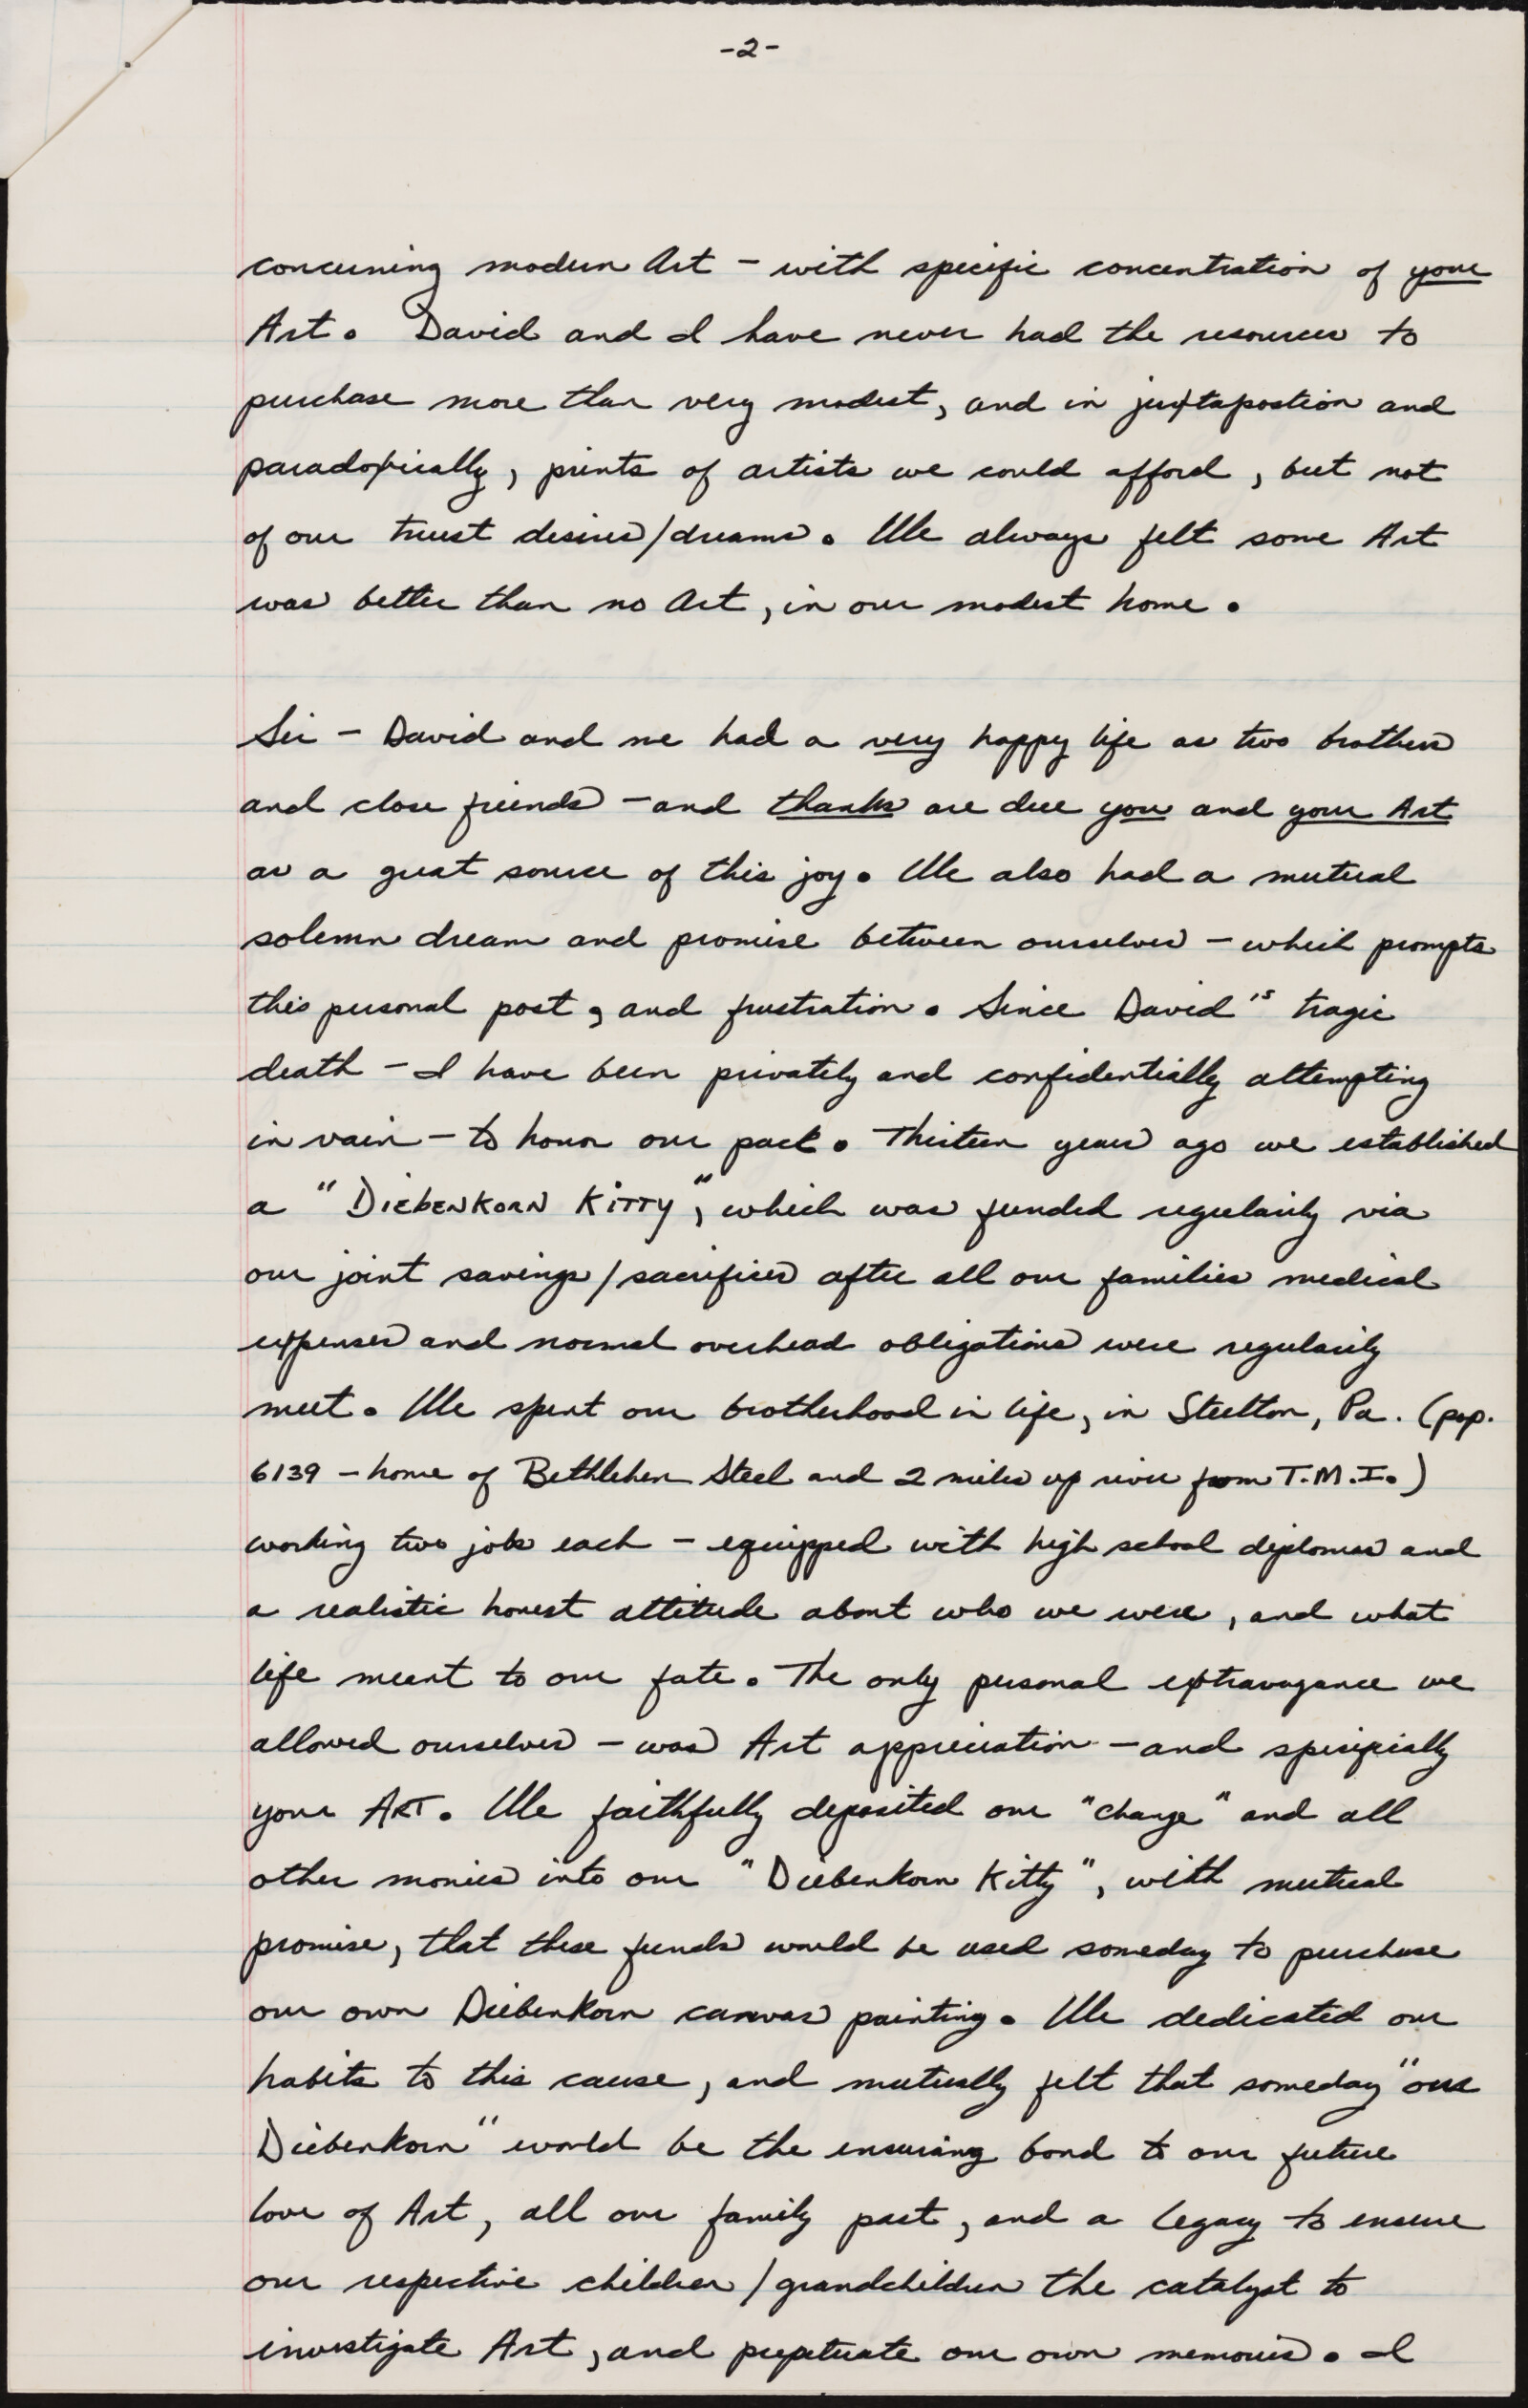 -2-
concerning modern Art - with specific concentration of your
Art. David and I have never had the resources to
purchase more than very modest, and in juxtapostion and
paradoxically, prints of artists we could afford, but not
of our truest desires/dreams. We always felt some Art
was better than no Art, in our modest home.
Sir - David and me had a very happy life as two brothers
and close friends - and thanks are due you and your Art
as a great source of this joy. We also had a mutual
solemn dream and promise between ourselves - which prompts
this personal post, and frustration. Since David's tragic
death - I have been privately and confidentially attempting
in vain - to honor our pact. Thirteen years ago we established
a "DIEBENKORN KITTY", which was funded regularily via
our joint savings/sacrifices after all our families medical
expenses and normal overhead obligations were regularily
meet. We spent our brotherhood in life, in Steelton, Pa. (pop.
6139 - home of Bethlehem Steel and 2 miles up river from T.M.I.)
working two jobs each - equipped with high school diplomas and
a realistic honest attitude about who we were, and what
life meant to our fate. The only personal extravagance we
allowed ourselves - was Art appreciation - and
your ART. We faithfully deposited our "change" and all
other monies into our "Diebenkorn Kitty", with mutual
promise, that these funds would be used someday to purchase
our own Diebenkorn canvas painting. We dedicated our
habits to this cause, and mutually felt that someday "our
Diebenkorn" would be the ensuring bond to our future
love of Art, all our family past, and a legacy to ensure
our respective children/grandchildren the catalyst to
investigate Art, and perpetuate our own memories. I